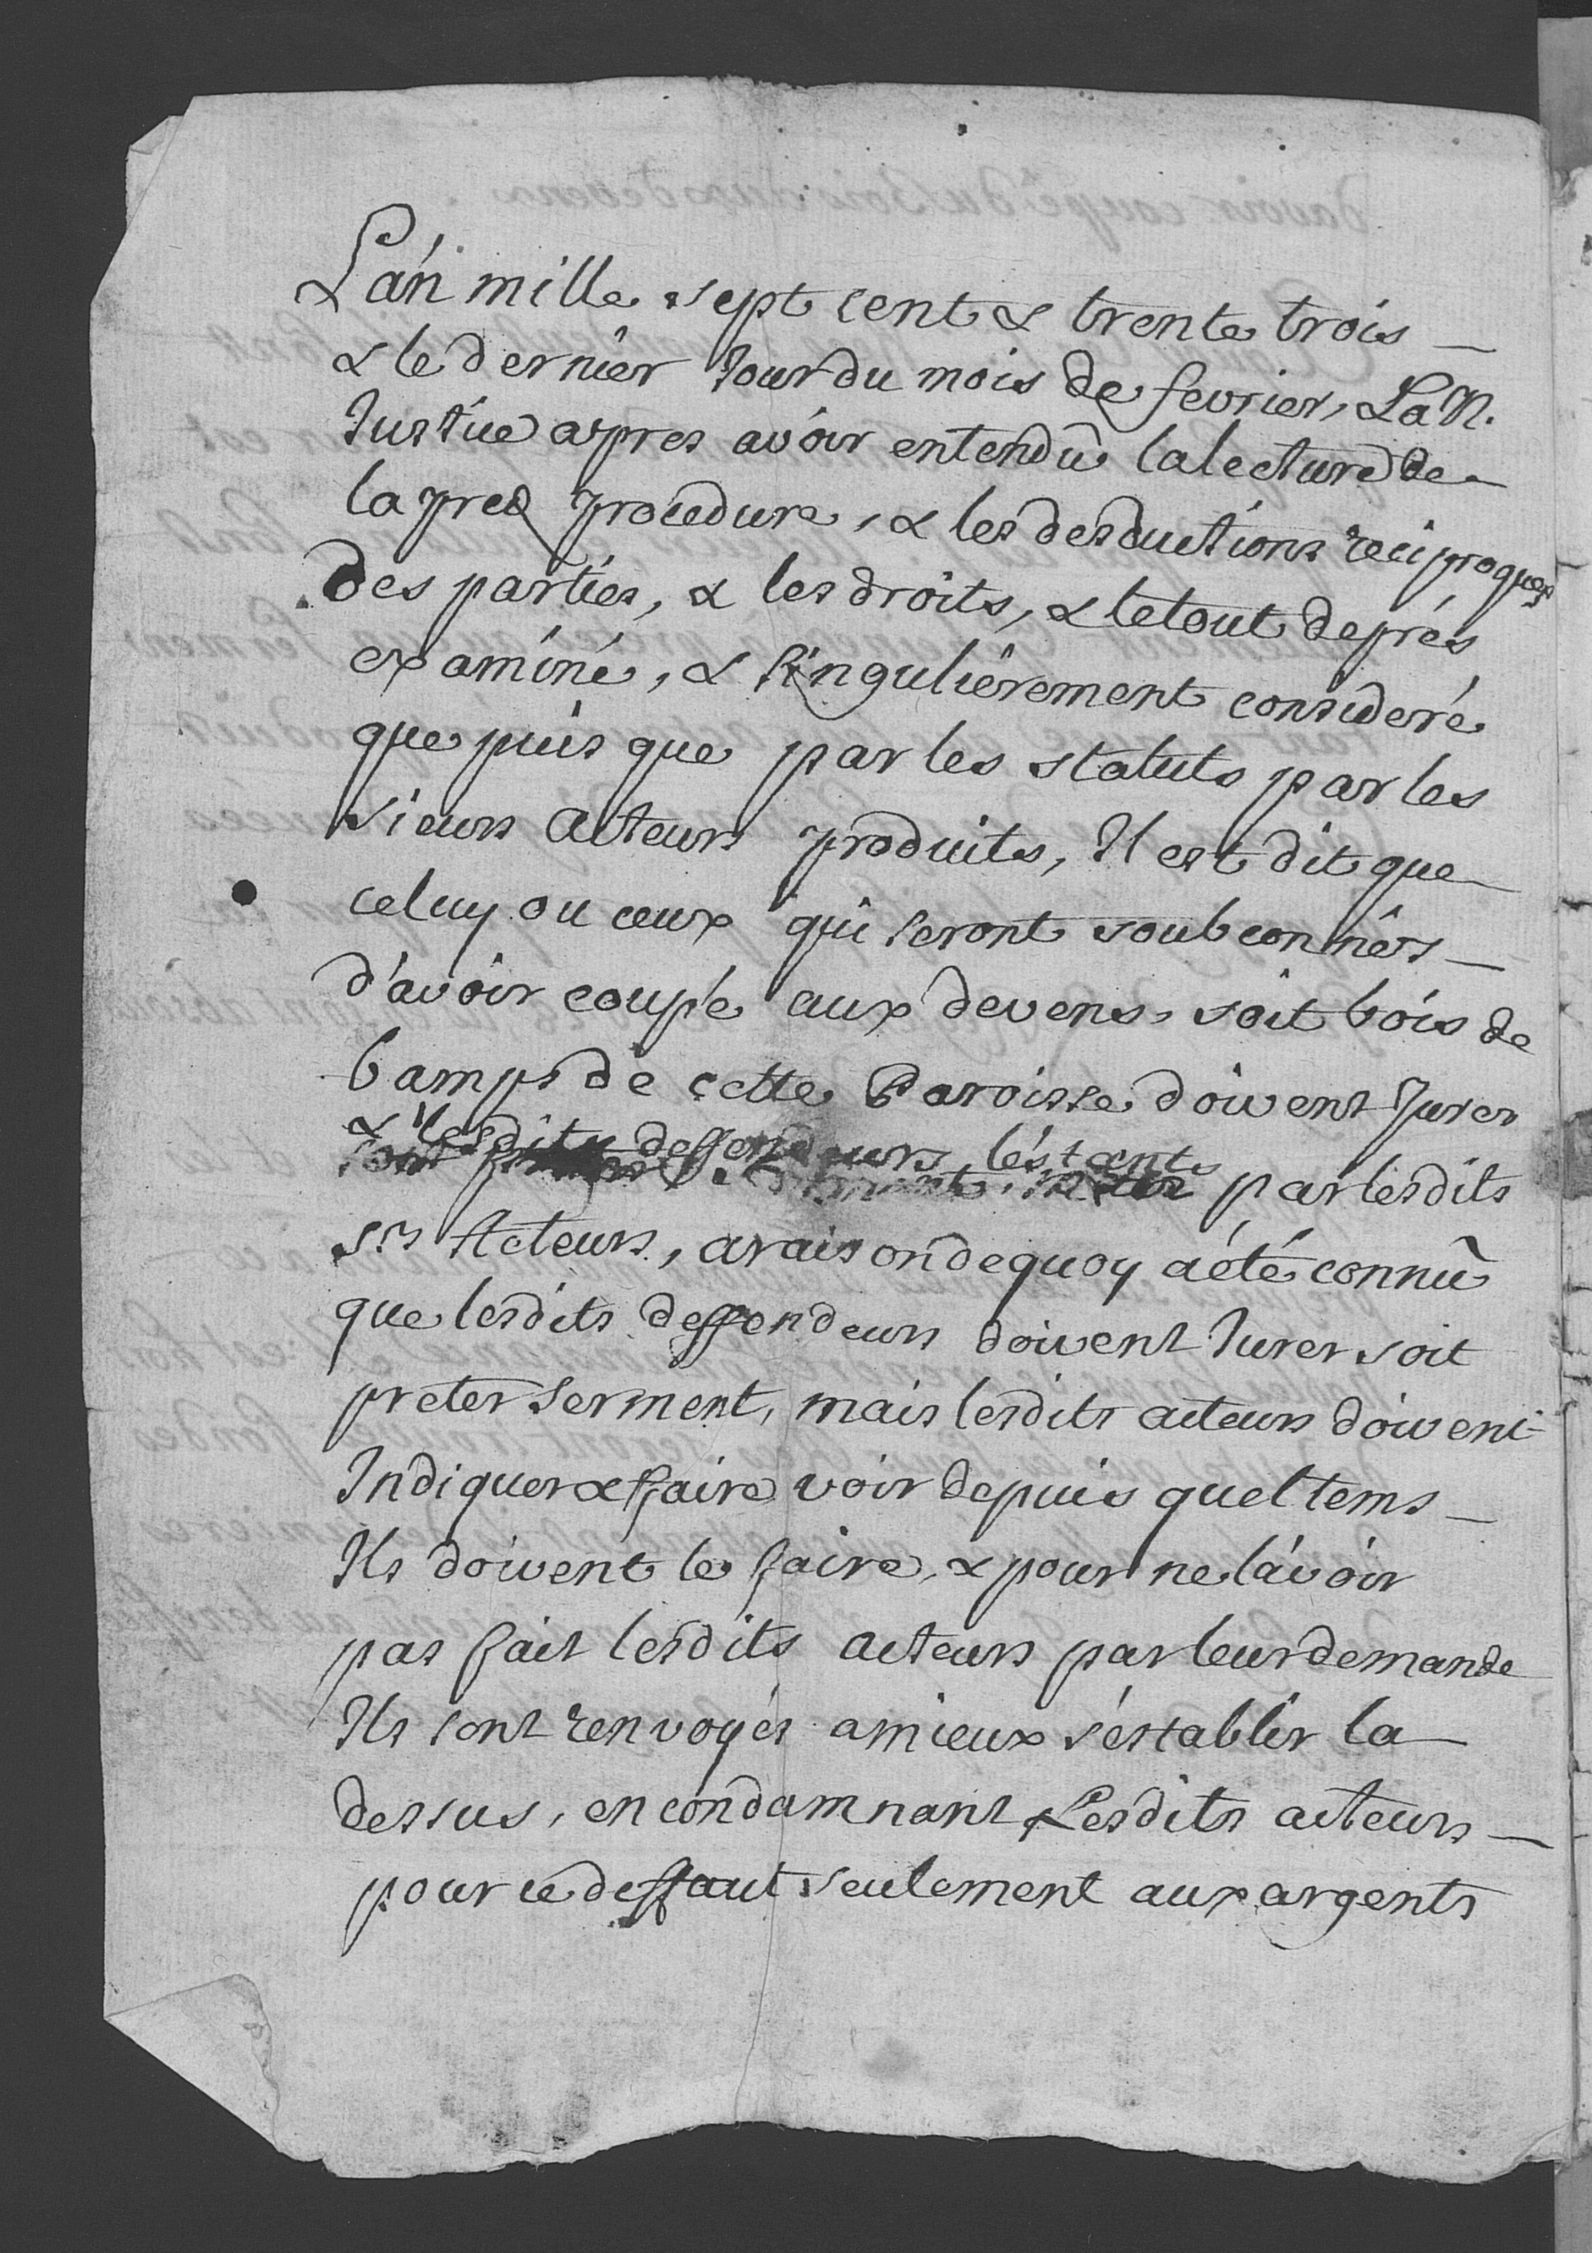 L'an mille sept cent & trente trois
& le dernier Jour du mois de fevrier, La N.
Justice apres avoir entendu la lecture de
la pred procedure, & les desductions reciproques
Des parties, & les droits, & le tout de prés
examiné, & singulierement consideré
que puis que par les statuts par les
sieurs acteurs produits, Il est dit que
celuy ou ceux qui seront soubconnés
d'avoir coupé aux devens, soit bois de
bamps de cette Paroisse doivent Jurer
& lesdits deffendeurs l'éstants
par lesdits
Srs Acteurs, a raison de quoy a été connû
que lesdits deffendeurs doivent Jurer soit
preter serment, mais lesdits acteurs doivent
Indiquer & faire voir depuis quel tems
Ils doivent le faire, & pour ne l'avoir
pas fait lesdits acteurs par leur demande
Ils sont renvoyés a mieux s'establir la
dessus, en condamnant Lesdits acteurs
pour ce deffaut seulement aux argents